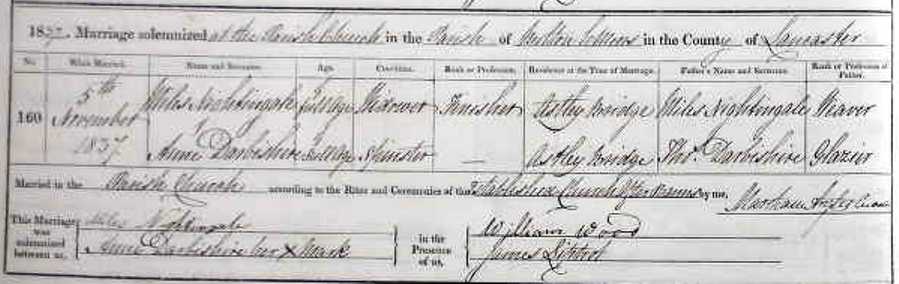 1837. Marriage solemnized at the Parish Church in the Parish of Bolton le Moors in the County of Lancaster
No. When Married. Name and Surname. Age. Condition. Rank or Profession. Residence at the Time of Marriage. Father's Name and Surname. Rank or Profession of Father.
160 5th November 1837 Miles Nightingale full age Widower Finisher Astley Bridge Miles Nightingale Weaver
& Anne Darbishire full age Spinster — Astley Bridge Thos. Darbishire Glazier
Married in the Parish Church according to the Rites and Ceremonies of the Established Church after Banns by me,
This Marriage was solemnized between us, Miles Nightingale
Anne Darbishire her X Mark
in the Presence of us, William Wood
James Liptrot